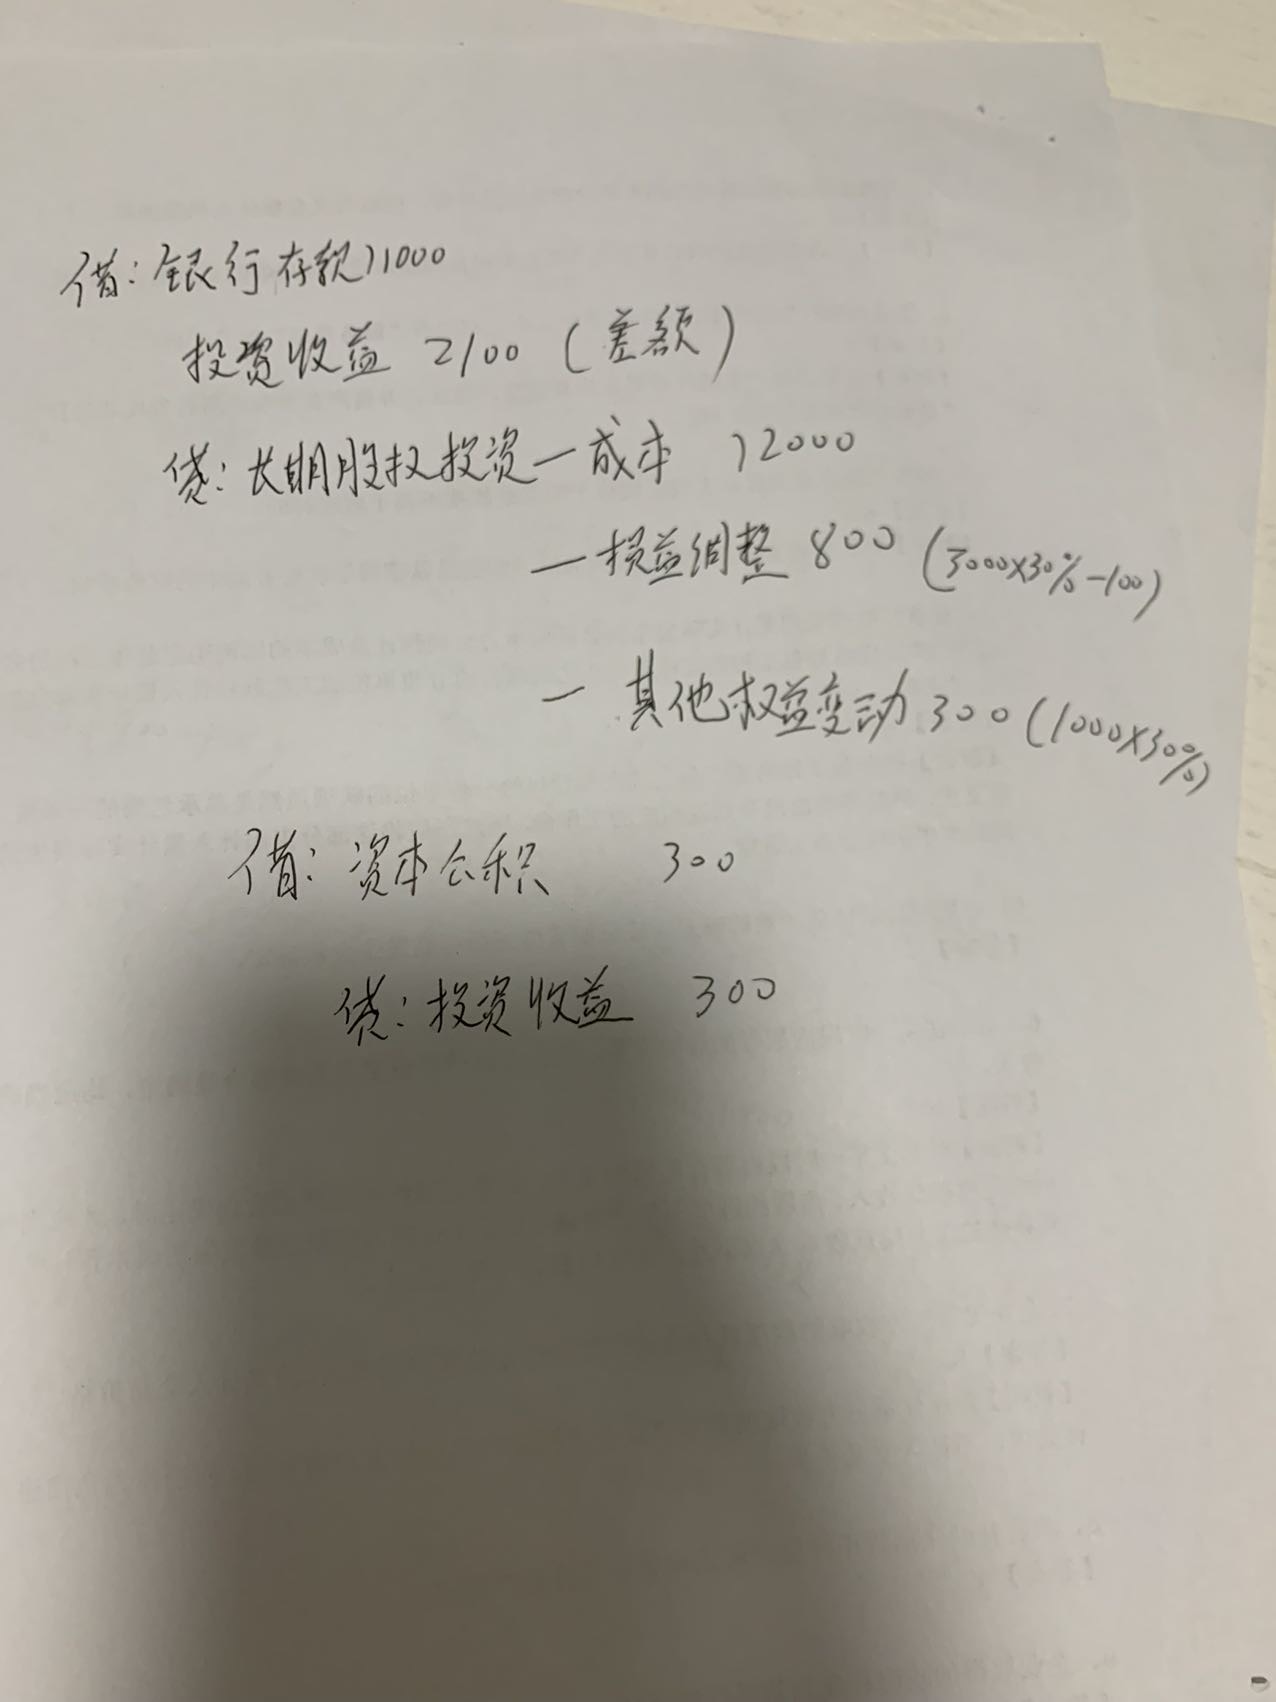 借：银行存款11000
投资收益 2100（差额）
贷：长期股权投资—成本 12000
—损益调整 800（3000×30%-100）
— 其他权益变动 300（1000×30%）
借：资本公积 300
贷：投资收益 300